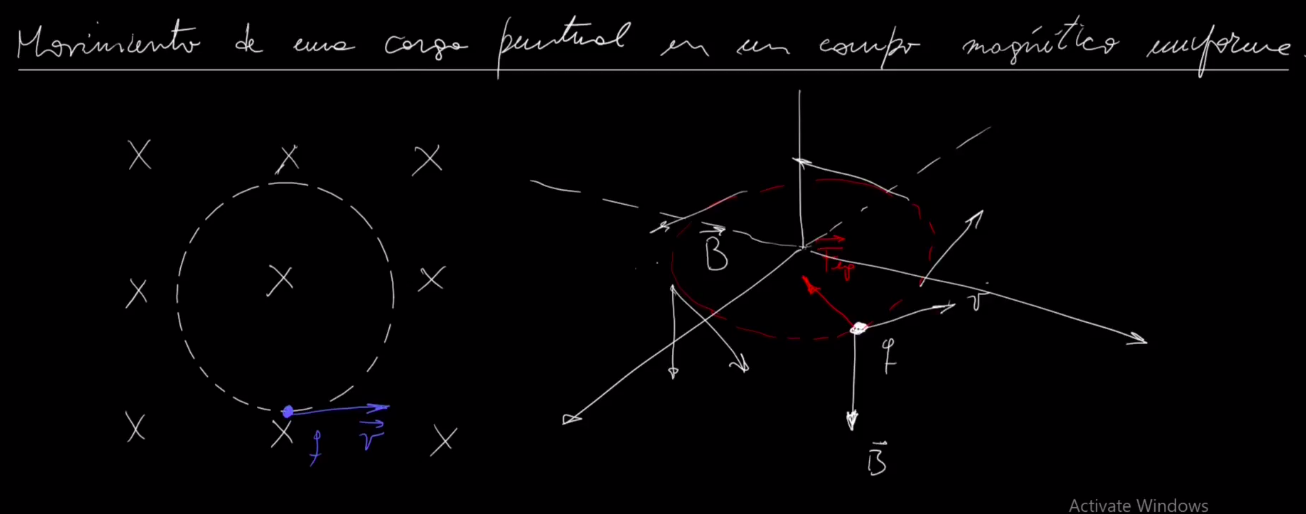 Movimiento de una carga puntual en un campo magnético uniforme.
X X X
X X X
X X X
q v
B
v
q
B
Activate Windows